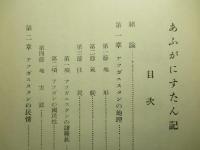 あふがにすたん記
目次
緒論
第一章 アフガニスタンの地理
第一節 地形
第二節 気候
第三節 住民
第一項 アフガニスタンの諸種族
第二項 アフガニスタンの国民性
第四節 地方誌
第二章 アフガニスタンの民情